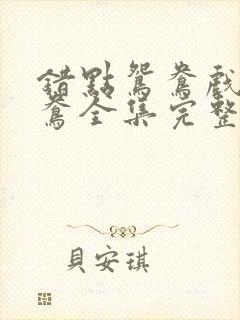 錯點鴛鴦戲
鴦全集完整
貝安琪